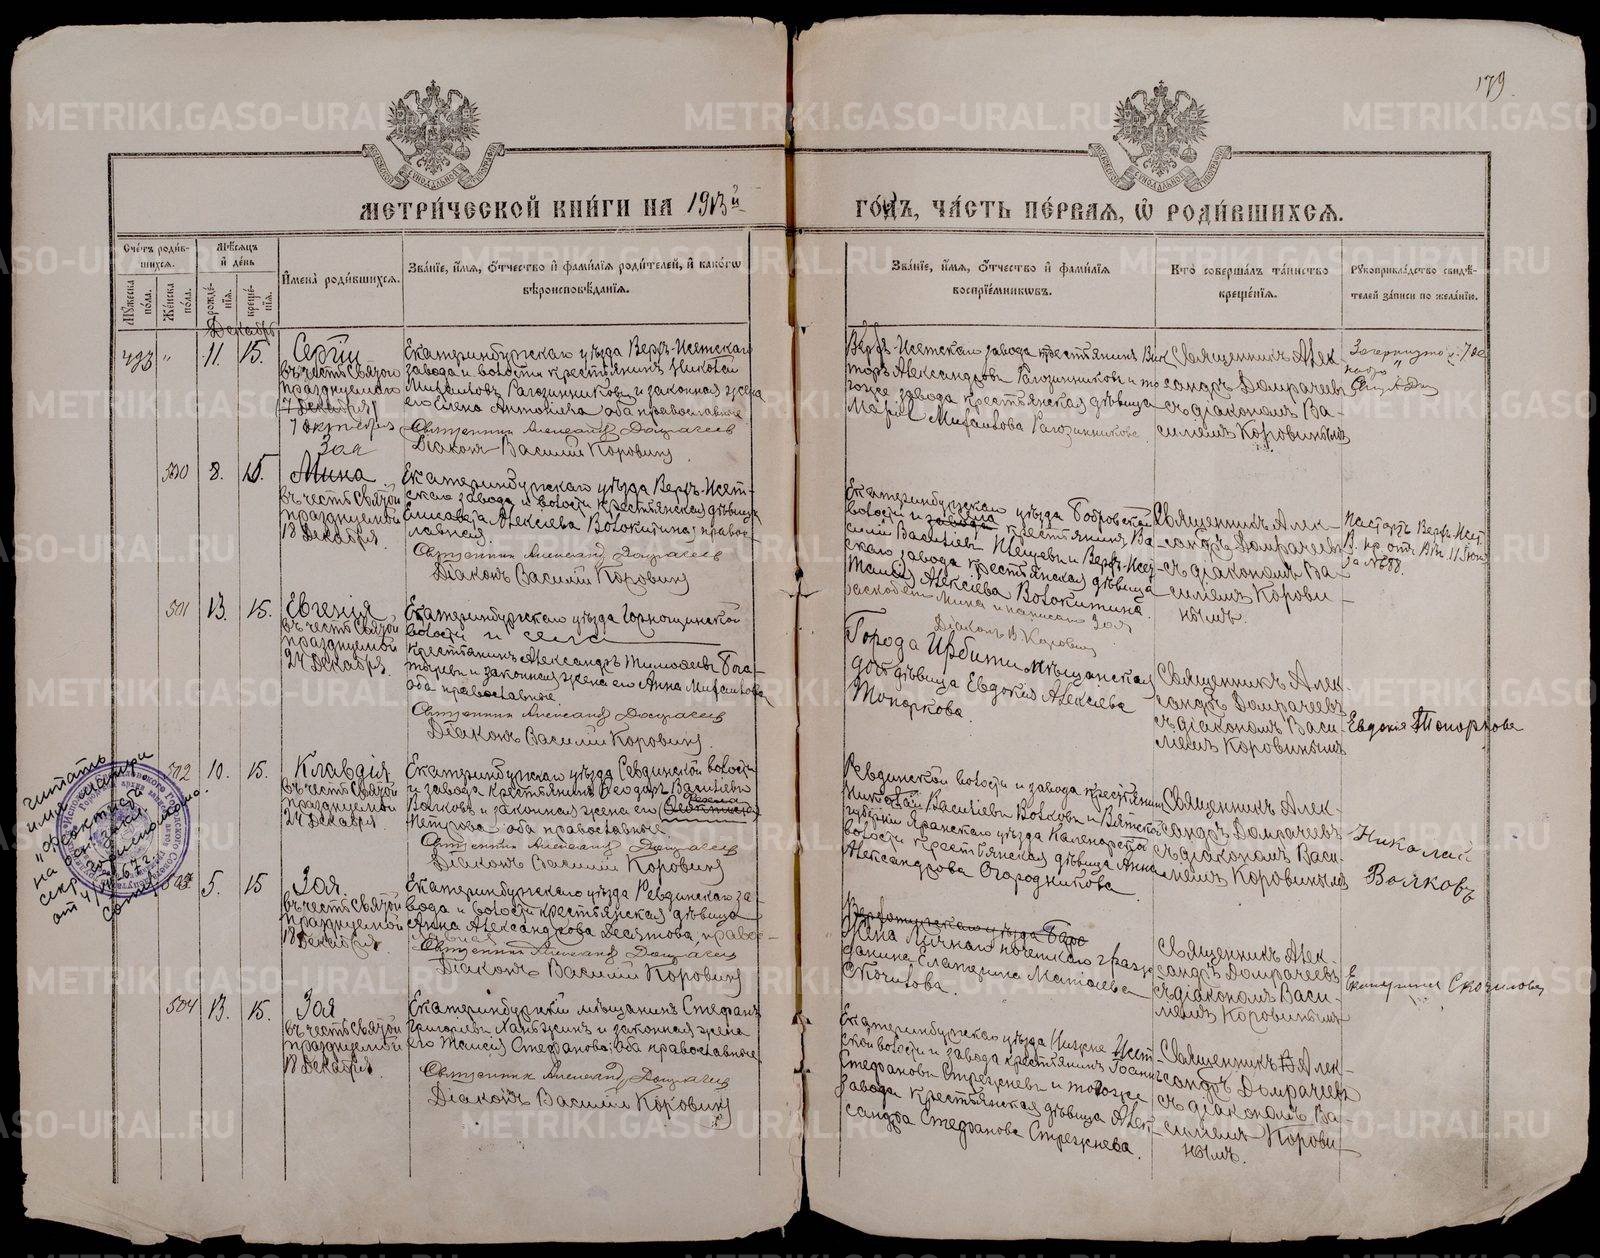 179.
МЕТРИЧЕСКОЙ КНИГИ НА 1913й
ГОДЪ, ЧАСТЬ ПЕРВАЯ, Ѡ РОДИВШИХСЯ.
Счетъ родив-
шихся.
Мужеска
пола.
Женска
пола.
Мѣсяцъ
и день
рожде-
нія.
креще-
нія.
Имена родившихся.
Званіе, имя, отчество и фамилія родителей, и какогѡ
вѣроисповѣданія.
Званіе, имя, отчество и фамилія
воспріемниковъ.
Кто совершалъ таинство
крещенія.
Рукоприкладство свидѣ-
телей записи по желанію.
Декабрь
493 " 11. 15.
Сергій
въ честь Святого
празднуемаго
7 Декабря
7 октября
Екатеринбургскаго уѣзда Верхъ-Исетскаго
завода и волости крестьянинъ Николай
Михаиловъ Рагозинниковъ и законная жена
его Елена Антоніева оба православные
Священник Александр Домрачеев
Діаконъ Василій Коровинъ
Верхъ-Исетскаго завода крестьянинъ Вик
торъ Александровъ Рагозинниковъ и то
гоже завода крестьянская дѣвица
Марія Михаилова Рагозинникова
Священникъ Алек-
сандръ Домрачеевъ
съ діакономъ Ва-
силіемъ Коровинымъ
500 8. 15.
Зоя
Мина
въ честь Святой
празднуемой
18 Декабря
Екатеринбургскаго уѣзда Верхъ-Исет-
скаго завода и волости крестьянская дѣвица
Елисавета Алексіева Волокитина, право-
славная
Священник Александр Домрачеев
Діаконъ Василій Коровинъ
Екатеринбургскаго уѣзда Бобровской
волости и завода села крестьянинъ Ва-
силій Василіевъ Пещеровъ и Верхъ-Исет-
скаго завода крестьянская дѣвица
Таисія Алексіева Волокитина.
Мина и написано Зоя
Діаконъ В Коровинъ
Священникъ Алек-
сандръ Домрачеевъ
съ діакономъ Ва-
силіемъ Корови-
нымъ.
501 13. 15.
Евгенія
въ честь Святой
празднуемой
24 Декабря
Екатеринбургскаго уѣзда Горнощитской
волости и села
крестьянинъ Александръ Тимоѳеевъ Бога-
тыревъ и законная жена его Анна Михаилова
оба православные
Священник Александр Домрачеев
Діаконъ Василій Коровинъ.
Города Ирбити мѣщанская
дочь дѣвица Евдокія Алексіева
Топоркова.
Священникъ Алек-
сандръ Домрачеевъ
съ діакономъ Васи-
ліемъ Коровинымъ
Евдокія Топоркова
502 10. 15.
Клавдія
въ честь Святой
празднуемой
24 Декабря
Екатеринбургскаго уѣзда Ревдинской волости
и завода крестьянинъ Ѳеодоръ Василіевъ
Волковъ и законная жена его
Петрова оба православные
Священник Александр Домрачеев
Діаконъ Василій Коровинъ
Ревдинской волости и завода крестьянинъ
Николай Василіевъ Волковъ и Вятской
губерніи Яранскаго уѣзда
волости крестьянская дѣвица Анна
Александрова Огородникова
Священникъ Алек-
сандръ Домрачеевъ
съ діакономъ Васи-
ліемъ Коровинымъ
Николай
Волковъ
503 5. 15
Зоя.
въ честь Святой
празднуемой
18 Декабря
Екатеринбургскаго уѣзда Ревдинскаго за-
вода и волости крестьянская дѣвица
Анна Александрова Десятова, право-
Священник Александр Домрачеев
Діаконъ Василій Коровинъ
Верхотурскаго уѣзда
Жена личнаго почетнаго граж-
данина Екатерина Матѳіева
Скочилова.
Священникъ Алек-
сандръ Домрачеевъ
съ діакономъ Васи-
ліемъ Коровинымъ
Екатерина Скочилова
504 13. 15.
Зоя
въ честь Святой
празднуемой
18 Декабря
Екатеринбургскій мѣщанинъ Стефанъ
Григорьевъ и законная жена
его Таисія Стефанова; оба православные
Священник Александр Домрачеев
Діаконъ Василій Коровинъ
Екатеринбургскаго уѣзда Нижне Исет-
ской волости и завода крестьянинъ Іоаннъ
Стефановъ Стрежневъ и того же
завода крестьянская дѣвица Алек-
сандра Стефанова Стрежнева.
Священникъ Алек-
сандръ Домрачеевъ
съ діакономъ Ва-
силіемъ Корови-
нымъ.
читать
имя матери
METRIKI.GASO-URAL.RU